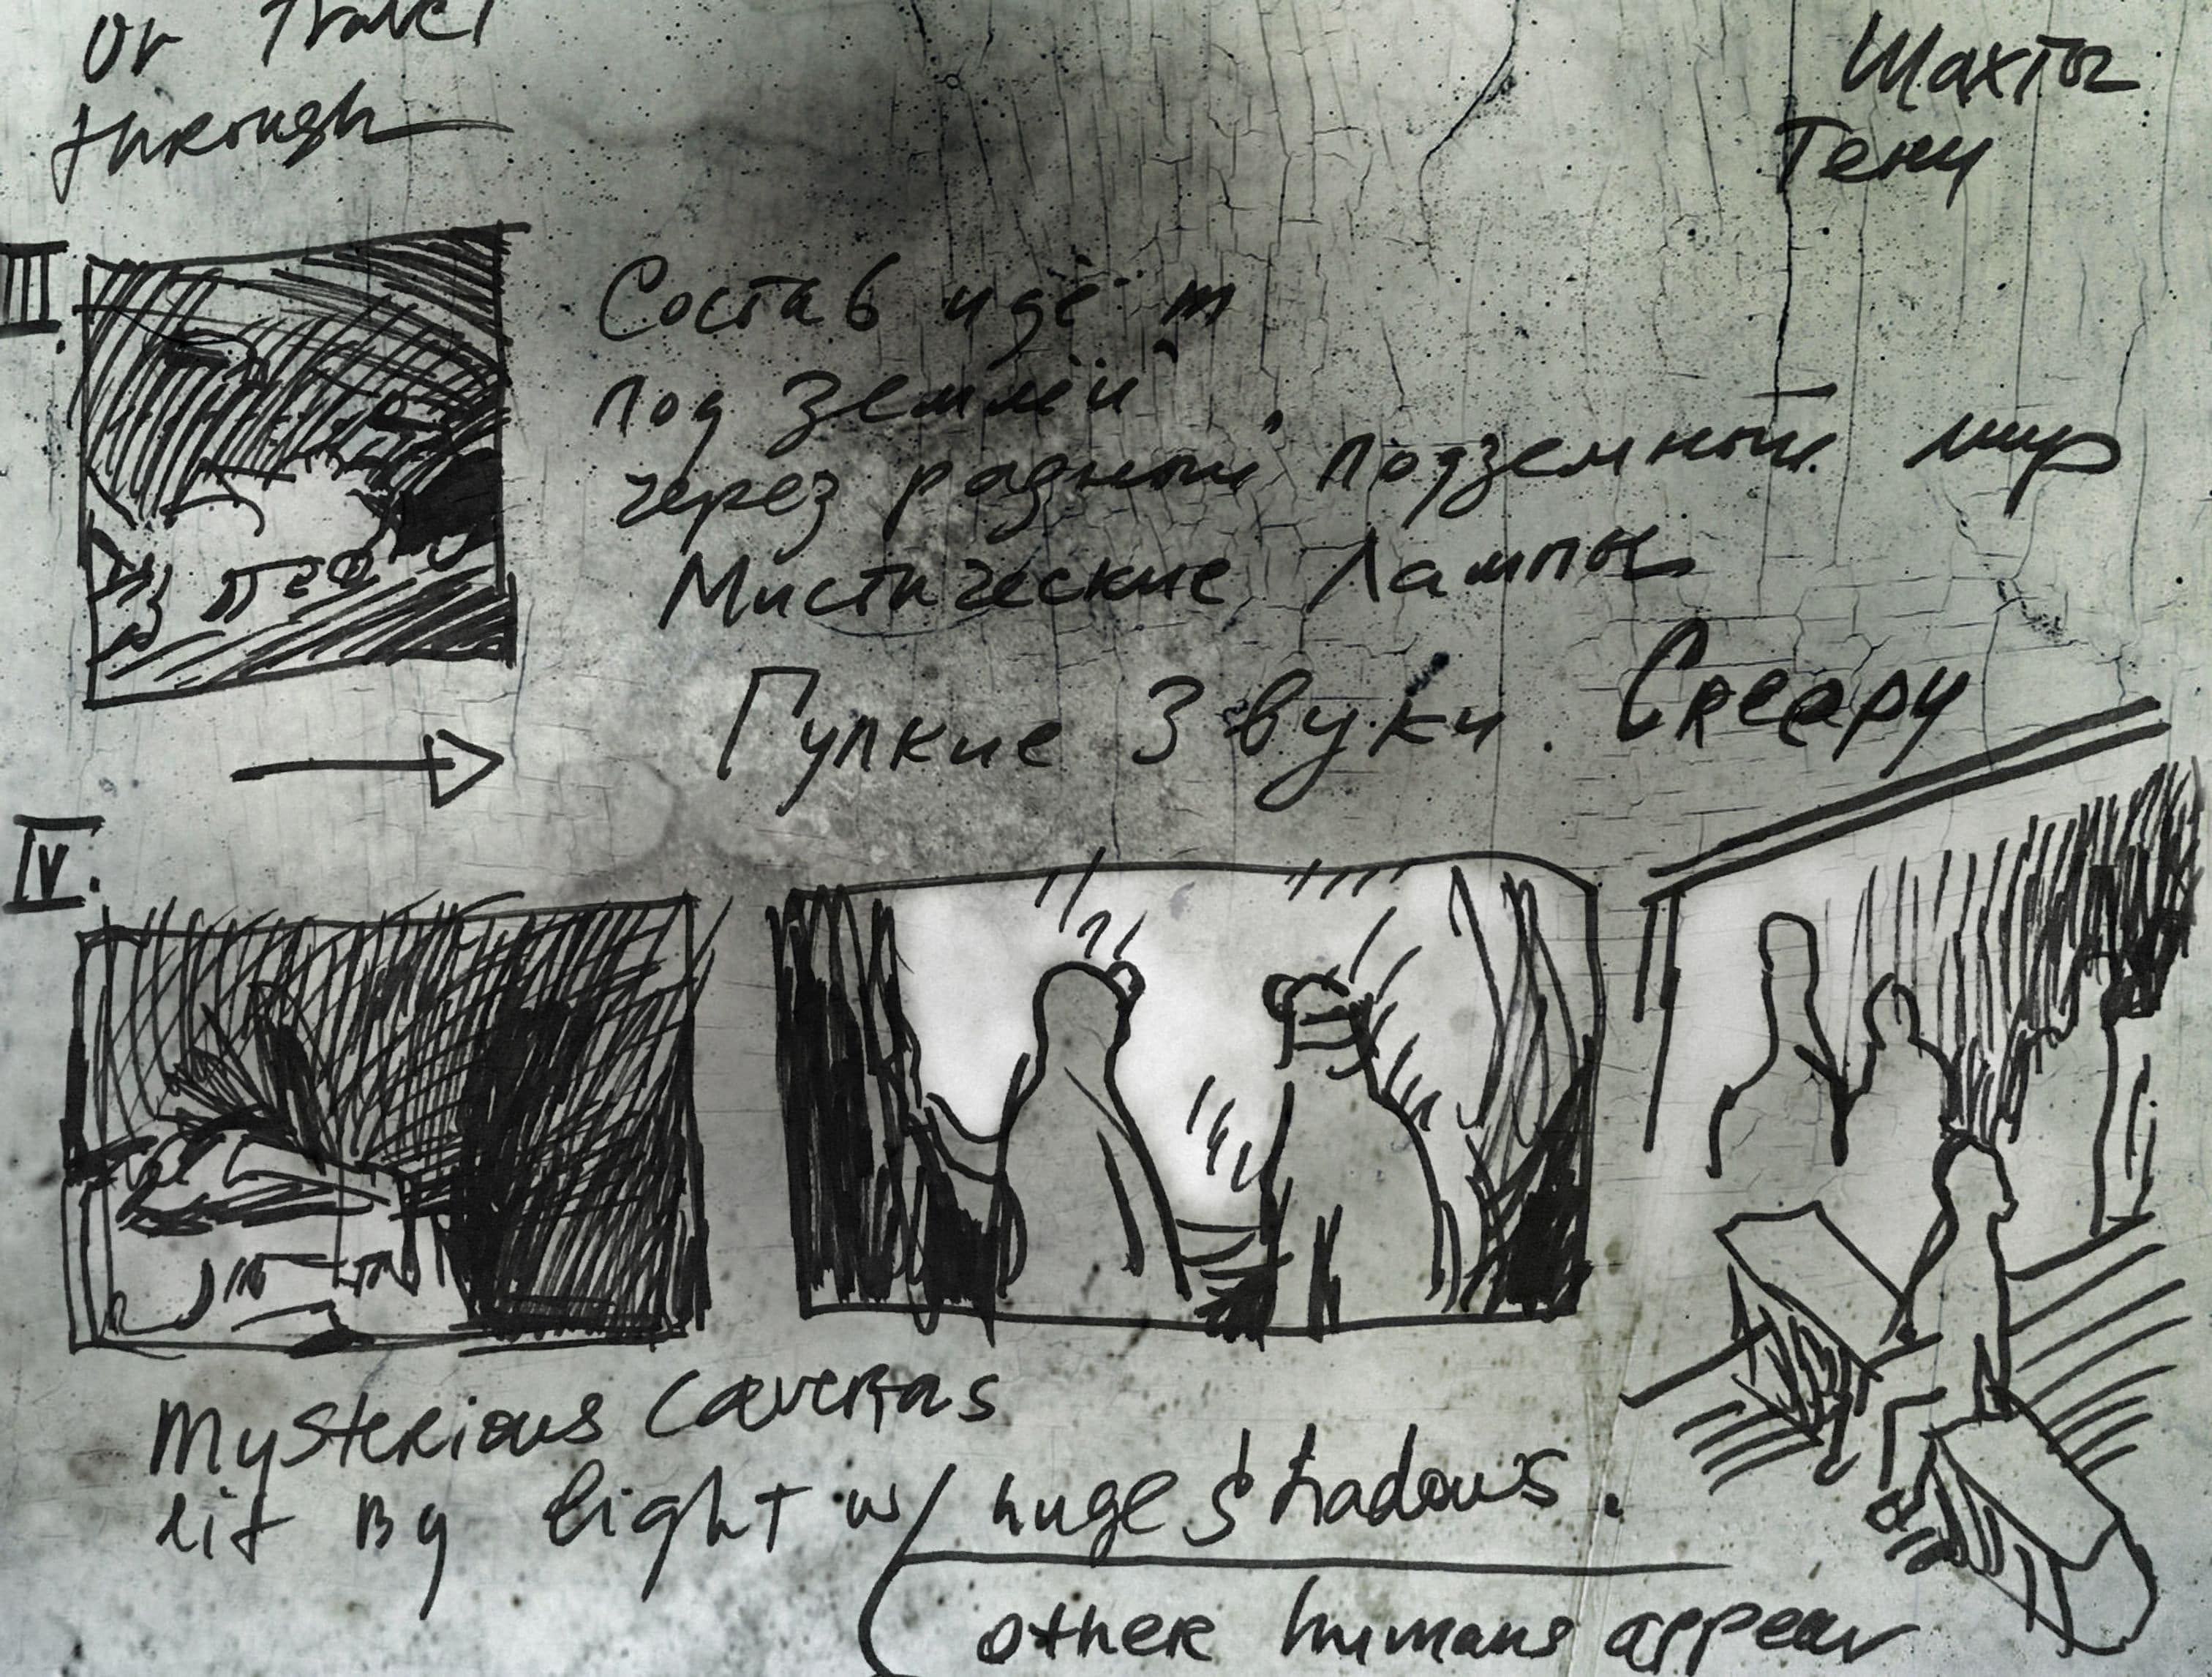 or Travel
through
Шахты
Тени
III.
Состав идёт
под землёй
через разный подземный мир
Мистические Лампы
Гулкие Звуки. Creepy
IV.
Mysterious caverns
lit By light w/ huge shadows.
other humans appear